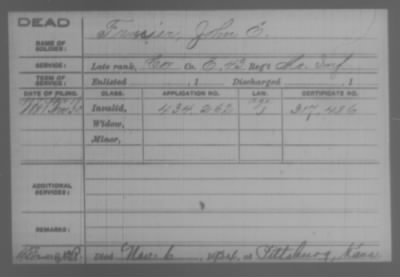 DEAD
NAME OF SOLDIER: John E.
SERVICE: Late rank, Cor Co. E. 43 Reg't Inf
TERM OF SERVICE: Enlisted , 1 Discharged , 1
DATE OF FILING. CLASS. APPLICATION NO. LAW. CERTIFICATE NO.
Invalid, 434.262 317.486
Widow,
Minor,
ADDITIONAL SERVICES:
REMARKS:
Died 6 at Pittsburg, Kans